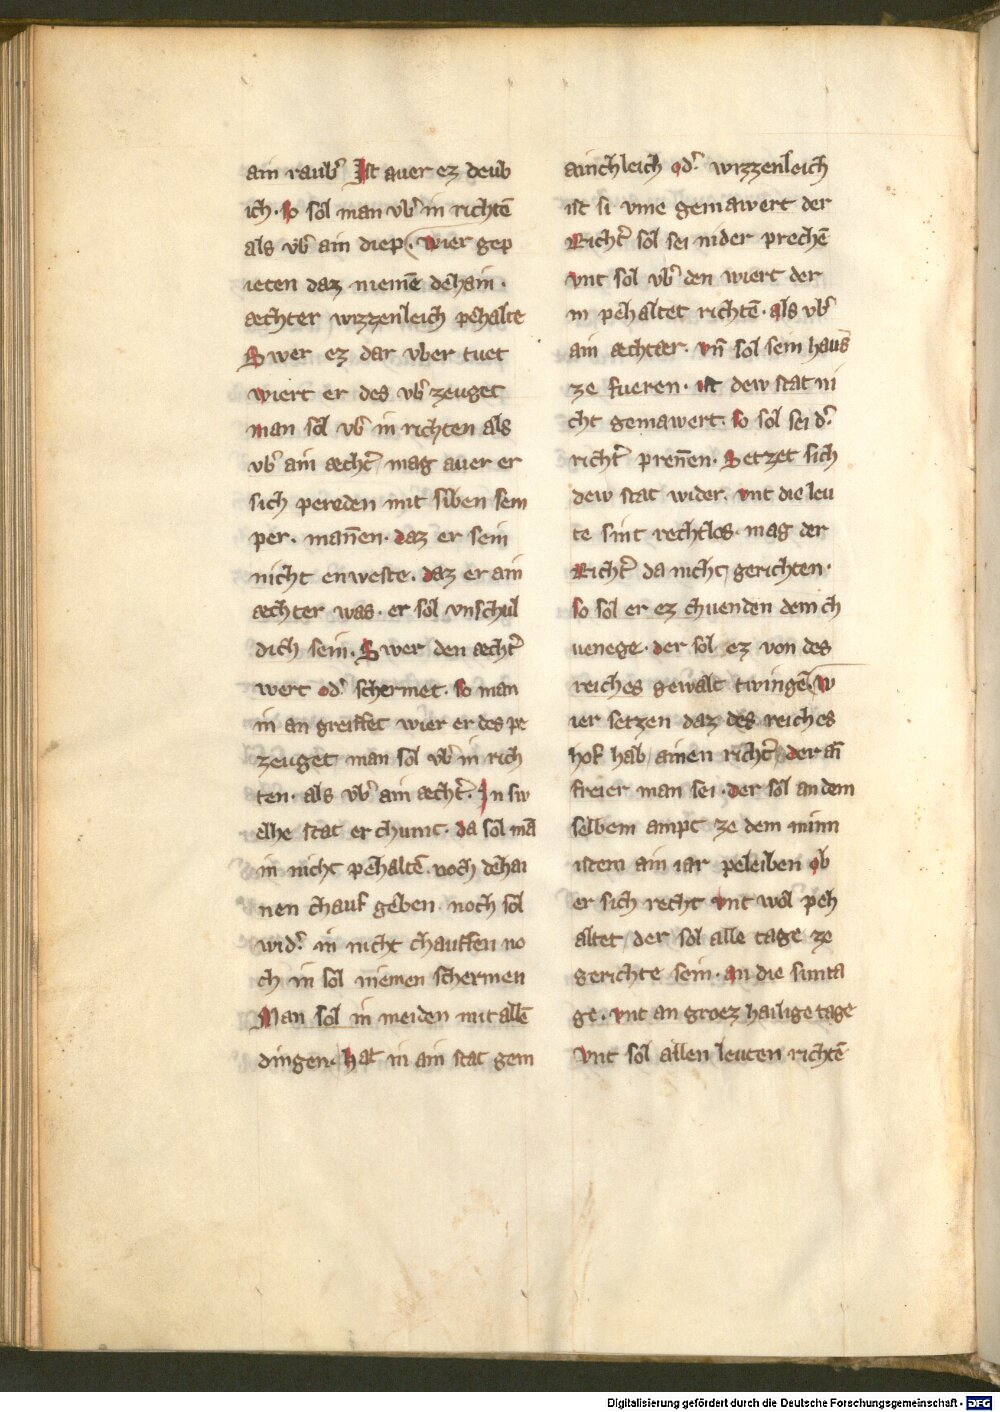 ain raub᷑ Ist auer ez deub
ich · so sol man vb᷑ in richtē
als vb᷑ ain diep · wier gep
ieten daz niemē dehain ·
æchter wizzenleich pehalte
Swer ez dar vber tuet
wiert er des vb᷑ zeuget
man sol vb᷑ in richten als
vb᷑ ain æcht᷑ mag auer er
sich pereden mit siben sem
per · mañen · daz er sein
nicht enweste · daz er ain
æchter was · er sol vnschul
dich sein · Swer den æcht᷑
wert od᷑ schermet · so man
in an greiffet wier er des pe
zeuget man sol vb᷑ in rich
ten · als vb᷑ ain æcht᷑ · In sw
elhe stat er chumt · da sol mā
in nicht pehaltē · noch dehai
nen chauf geben · noch sol
wid᷑ in nicht chauffen no
ch in sol niemen schermen
Man sol in meiden mit allē
dingen · hat in ain stat gem
ainchleich od᷑ wizzenleich
ist si vme gemawert der
Richt᷑ sol sei nider prechē
vnt sol vb᷑ den wiert der
in pehaltet richtē · als vb᷑
ain æchter · vñ sol sein haus
ze fueren · ist dew stat ni
cht gemawert · so sol sei d᷑
richt᷑ preñen · Setzet sich
dew stat wider · vnt die leu
te sint rechtlos · mag der
Richt᷑ da nicht gerichten ·
so sol er ez chuenden dem ch
uenege · der sol ez von des
reiches gewalt twingē w
ier setzen daz des reiches
hof hab ainen richt᷑ · der aī
freier man sei · der sol an dem
selbem ampt ze dem minn
istem ain iar peleiben ob
er sich recht vnt wol peh
altet der sol alle tage ze
gerichte sein · an die sunta
ge · vnt an groez hailige tage
vnt sol allen leuten richtē
Digitalisierung gefördert durch die Deutsche Forschungsgemeinschaft - DFG